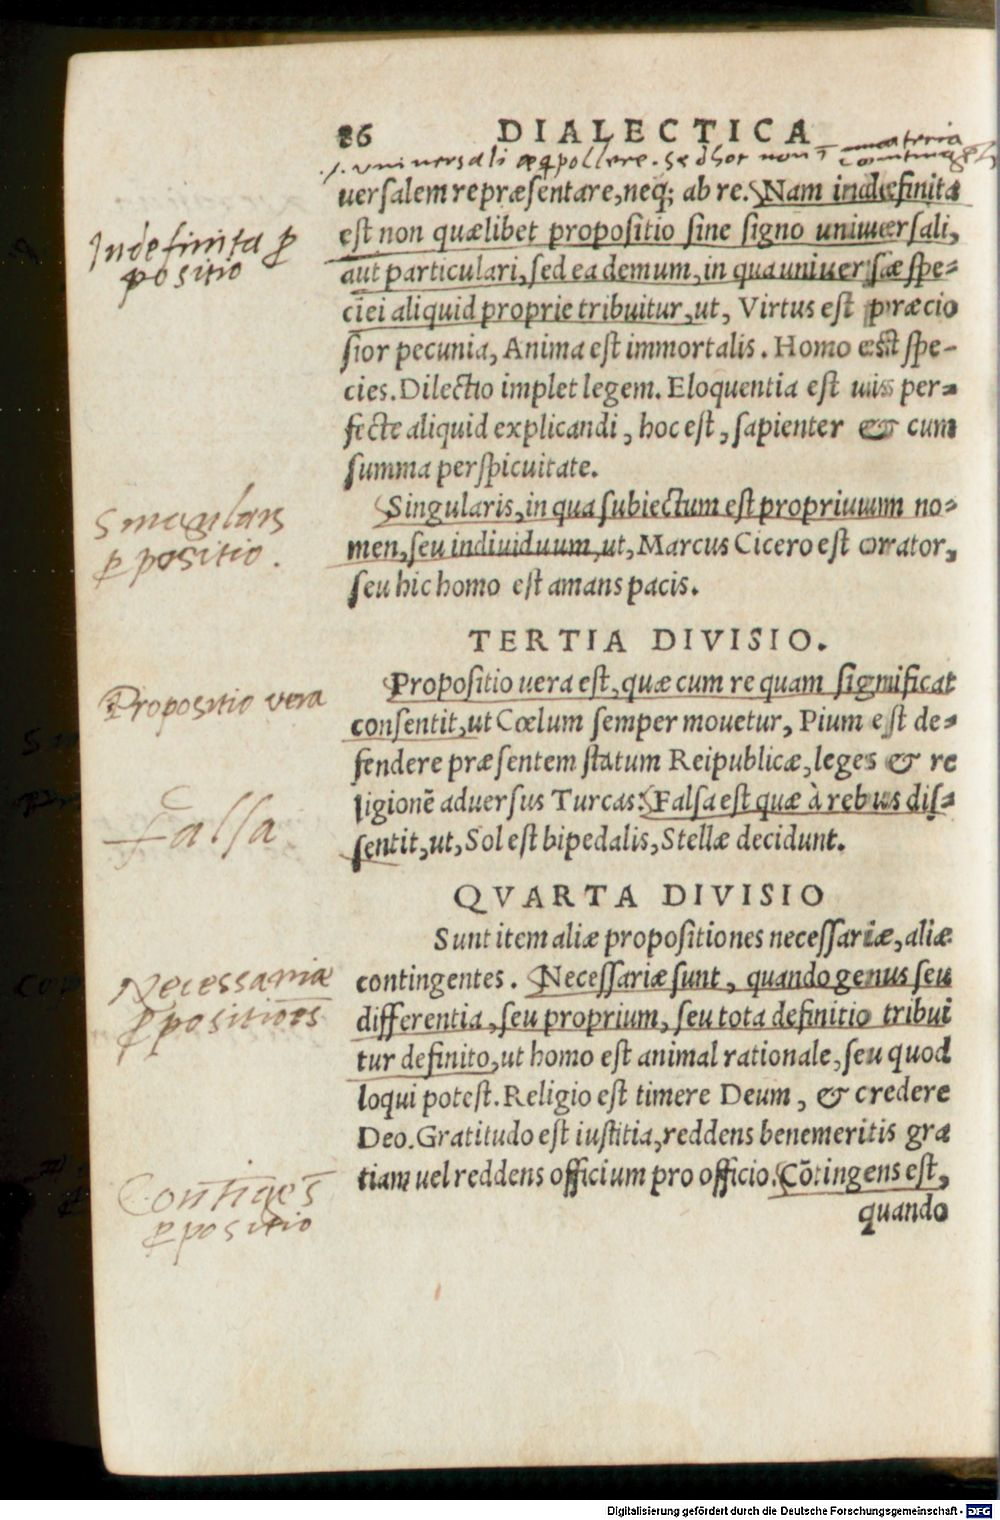 86 DIALECTICA
.i. universali æqpollere. sed hoc non ī materia
contingēti
uersalem repræsentare, neq; ab re. Nam indefinita
est non quælibet propositio sine signo uniuersali,
aut particulari, sed ea demum, in qua uniuersæ spe-
ciei aliquid proprie tribuitur, ut, Virtus est præcio
sior pecunia, Anima est immortalis. Homo est spe-
cies. Dilectio implet legem. Eloquentia est uis per-
fecte aliquid explicandi, hoc est, sapienter & cum
summa perspicuitate.
Indefinita ꝓ
positio
Singularis, in qua subiectum est proprium no-
men, seu indiuiduum, ut, Marcus Cicero est orator,
seu hic homo est amans pacis.
Singularis
ꝓpositio.
TERTIA DIVISIO.
Propositio uera est, quæ cum re quam significat
consentit, ut Cœlum semper mouetur, Pium est de-
fendere præsentem statum Reipublicæ, leges & re
ligionē aduersus Turcas. Falsa est quæ à rebus dis-
sentit, ut, Sol est bipedalis, Stellæ decidunt.
Propositio vera
Falsa
QVARTA DIVISIO
Sunt item aliæ propositiones necessariæ, aliæ
contingentes. Necessariæ sunt, quando genus seu
differentia, seu proprium, seu tota definitio tribui
tur definito, ut homo est animal rationale, seu quod
loqui potest. Religio est timere Deum, & credere
Deo. Gratitudo est iustitia, reddens benemeritis gra
tiam uel reddens officium pro officio. Cōtingens est,
quando
Necessariæ
ꝓpositiōes
Contīgēs
ꝓpositio
Digitalisierung gefördert durch die Deutsche Forschungsgemeinschaft - DFG